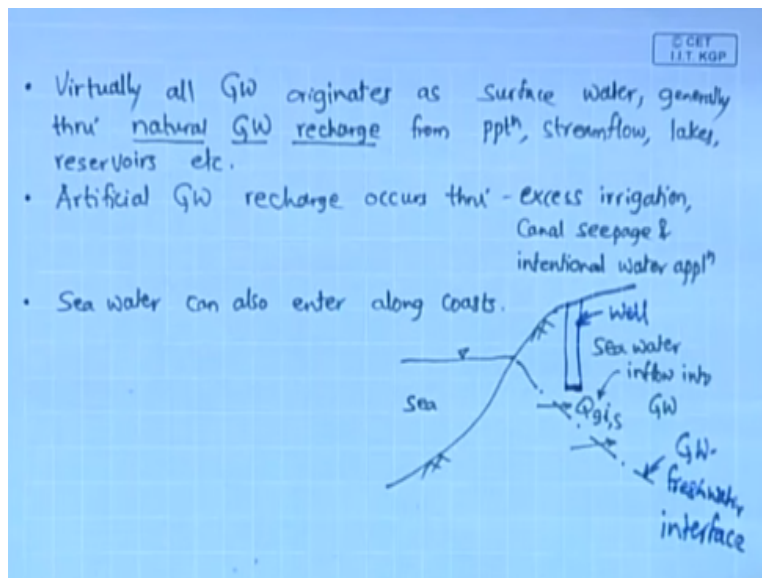 © CET
I.I.T. KGP
• Virtually all GW originates as surface water, generally
thru' natural GW recharge from pptⁿ, streamflow, lakes,
reservoirs etc.
• Artificial GW recharge occurs thru' - excess irrigation,
Canal seepage &
intentional water applⁿ
• Sea water can also enter along coasts.
Well
Sea water
inflow into
Sea
Qgi,s
GW
GW-
freshwater
interface